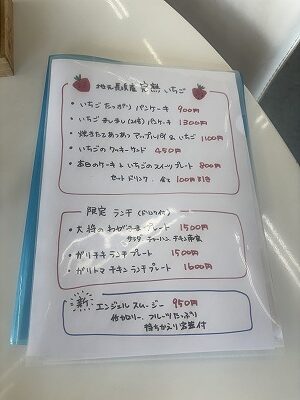 地元農家産 完熟 いちご
・いちご たっぷり パンケーキ 900円
・いちご ましまし(2倍) パンケーキ 1300円
・焼きたてあつあつ アップルパイ & いちご 1100円
・いちごの クッキーサンド 450円
・本日のケーキと いちごのスイーツプレート 800円
セットドリンク 全て 100円引き
限定 ランチ (ドリンク付)
・大将の わがままプレート 1500円
サラダ チャーハン チキン南蛮
・ガリチキ ランチプレート 1500円
・ガリトマ チキン ランチプレート 1600円
新 エンジェル スムージー 950円
低カロリー、フルーツ たっぷり
持ちかえり容器付